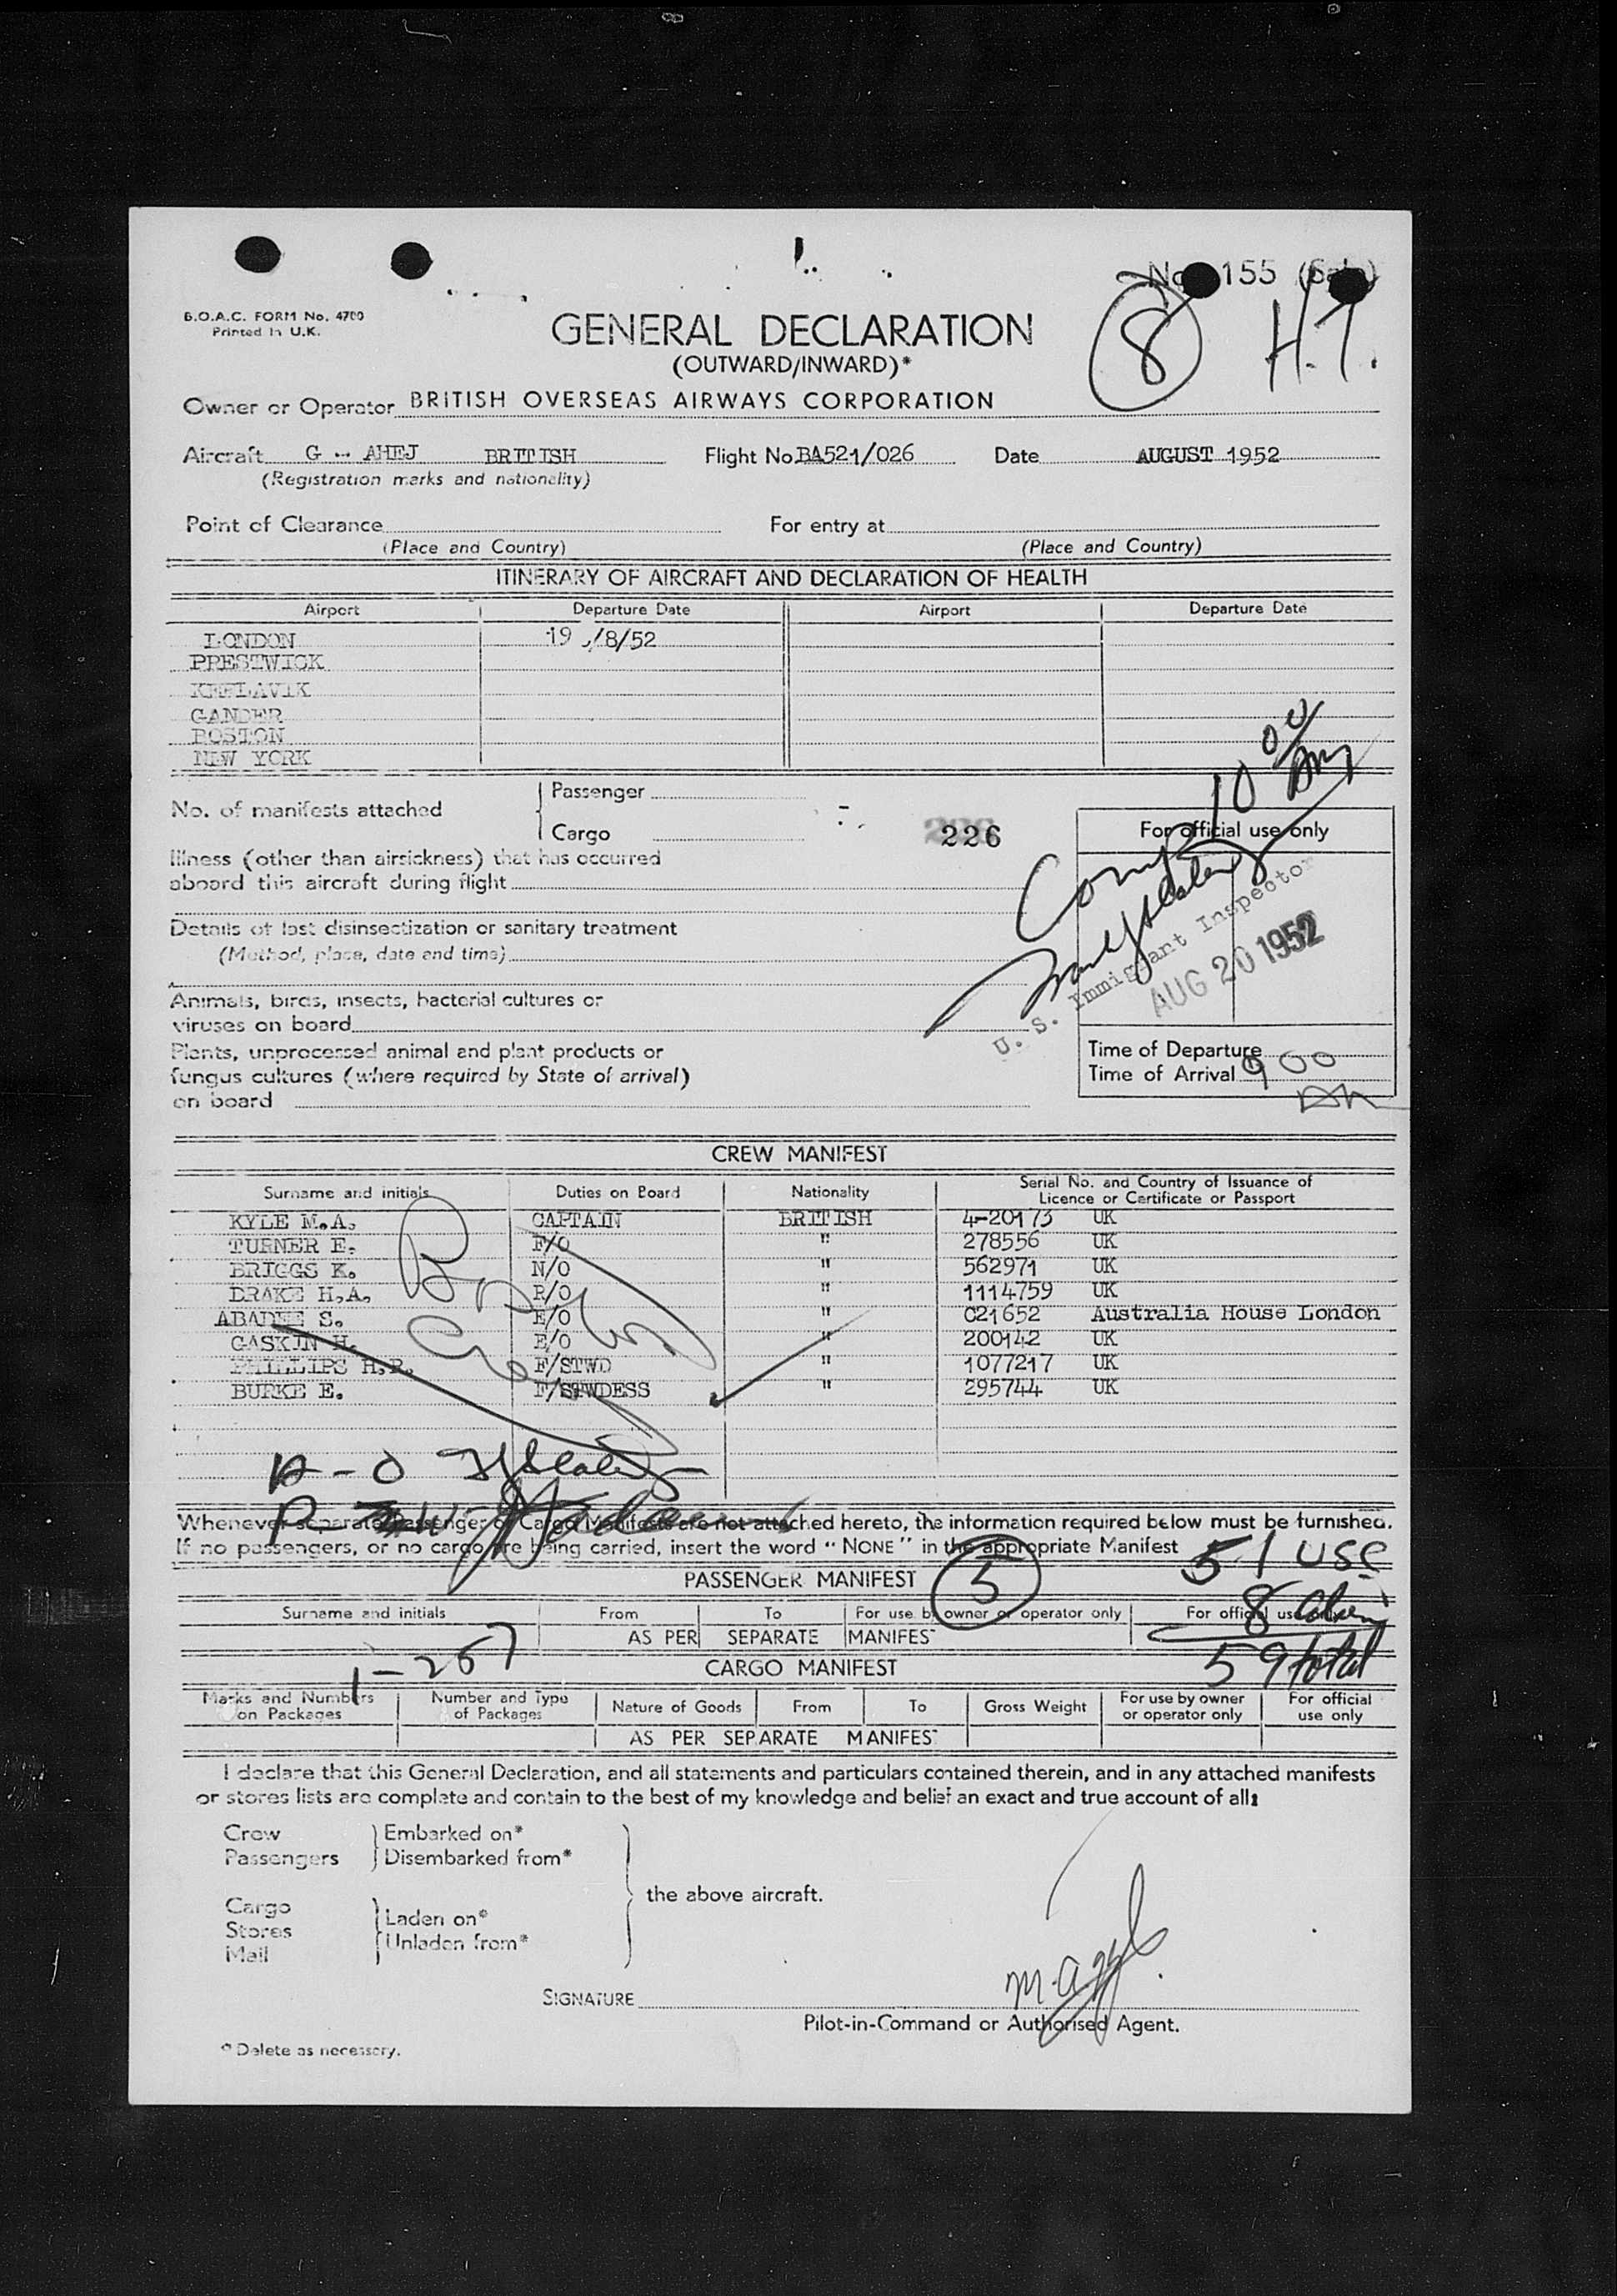 No 155 (Sale)
8 H.T.
B.O.A.C. FORM No. 4700
Printed in U.K.
GENERAL DECLARATION
(OUTWARD/INWARD)*
Owner or Operator BRITISH OVERSEAS AIRWAYS CORPORATION
Aircraft G - AHEJ BRITISH Flight No BA521/026 Date AUGUST 1952
(Registration marks and nationality)
Point of Clearance For entry at
(Place and Country) (Place and Country)
ITINERARY OF AIRCRAFT AND DECLARATION OF HEALTH
Airport Departure Date Airport Departure Date
LONDON 19 /8/52
PRESTWICK
KEFLAVIK
GANDER
BOSTON
NEW YORK
10 00 AM
No. of manifests attached Passenger
Cargo
226
For official use only
Illness (other than airsickness) that has occurred
aboard this aircraft during flight
Details of last disinsectization or sanitary treatment
(Method, place, date and time)
U. S. Immigrant Inspector
AUG 20 1952
Animals, birds, insects, bacterial cultures or
viruses on board
Plants, unprocessed animal and plant products or
fungus cultures (where required by State of arrival)
on board
Time of Departure
Time of Arrival 9 00
AM
CREW MANIFEST
Surname and initials Duties on Board Nationality Serial No. and Country of Issuance of Licence or Certificate or Passport
KYLE M.A. CAPTAIN BRITISH 4-20173 UK
TURNER E. F/O " 278556 UK
BRIGGS K. N/O " 562971 UK
DRAKE H.A. R/O " 1114759 UK
ABADEE S. E/O " C21652 Australia House London
GASKIN H. E/O " 200142 UK
PHILLIPS H.R. F/STWD " 1077217 UK
BURKE E. F/STWDESS " 295744 UK
Whenever separate Passenger or Cargo Manifests are not attached hereto, the information required below must be furnished.
If no passengers, or no cargo are being carried, insert the word "NONE" in the appropriate Manifest
51 USC
PASSENGER MANIFEST
5
8 alien
Surname and initials From To For use by owner or operator only For official use only
AS PER SEPARATE MANIFEST
59 total
1-267
CARGO MANIFEST
Marks and Numbers on Packages Number and Type of Packages Nature of Goods From To Gross Weight For use by owner or operator only For official use only
AS PER SEPARATE MANIFEST
I declare that this General Declaration, and all statements and particulars contained therein, and in any attached manifests
or stores lists are complete and contain to the best of my knowledge and belief an exact and true account of all:
Crew Embarked on*
Passengers Disembarked from*
the above aircraft.
Cargo Laden on*
Stores Unladen from*
Mail
SIGNATURE
Pilot-in-Command or Authorised Agent.
* Delete as necessary.